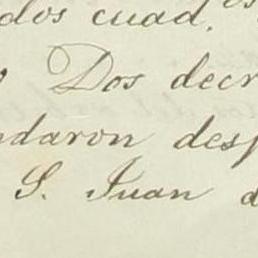 dos cuad.
Dos decr
ndaron desp
S. Juan d